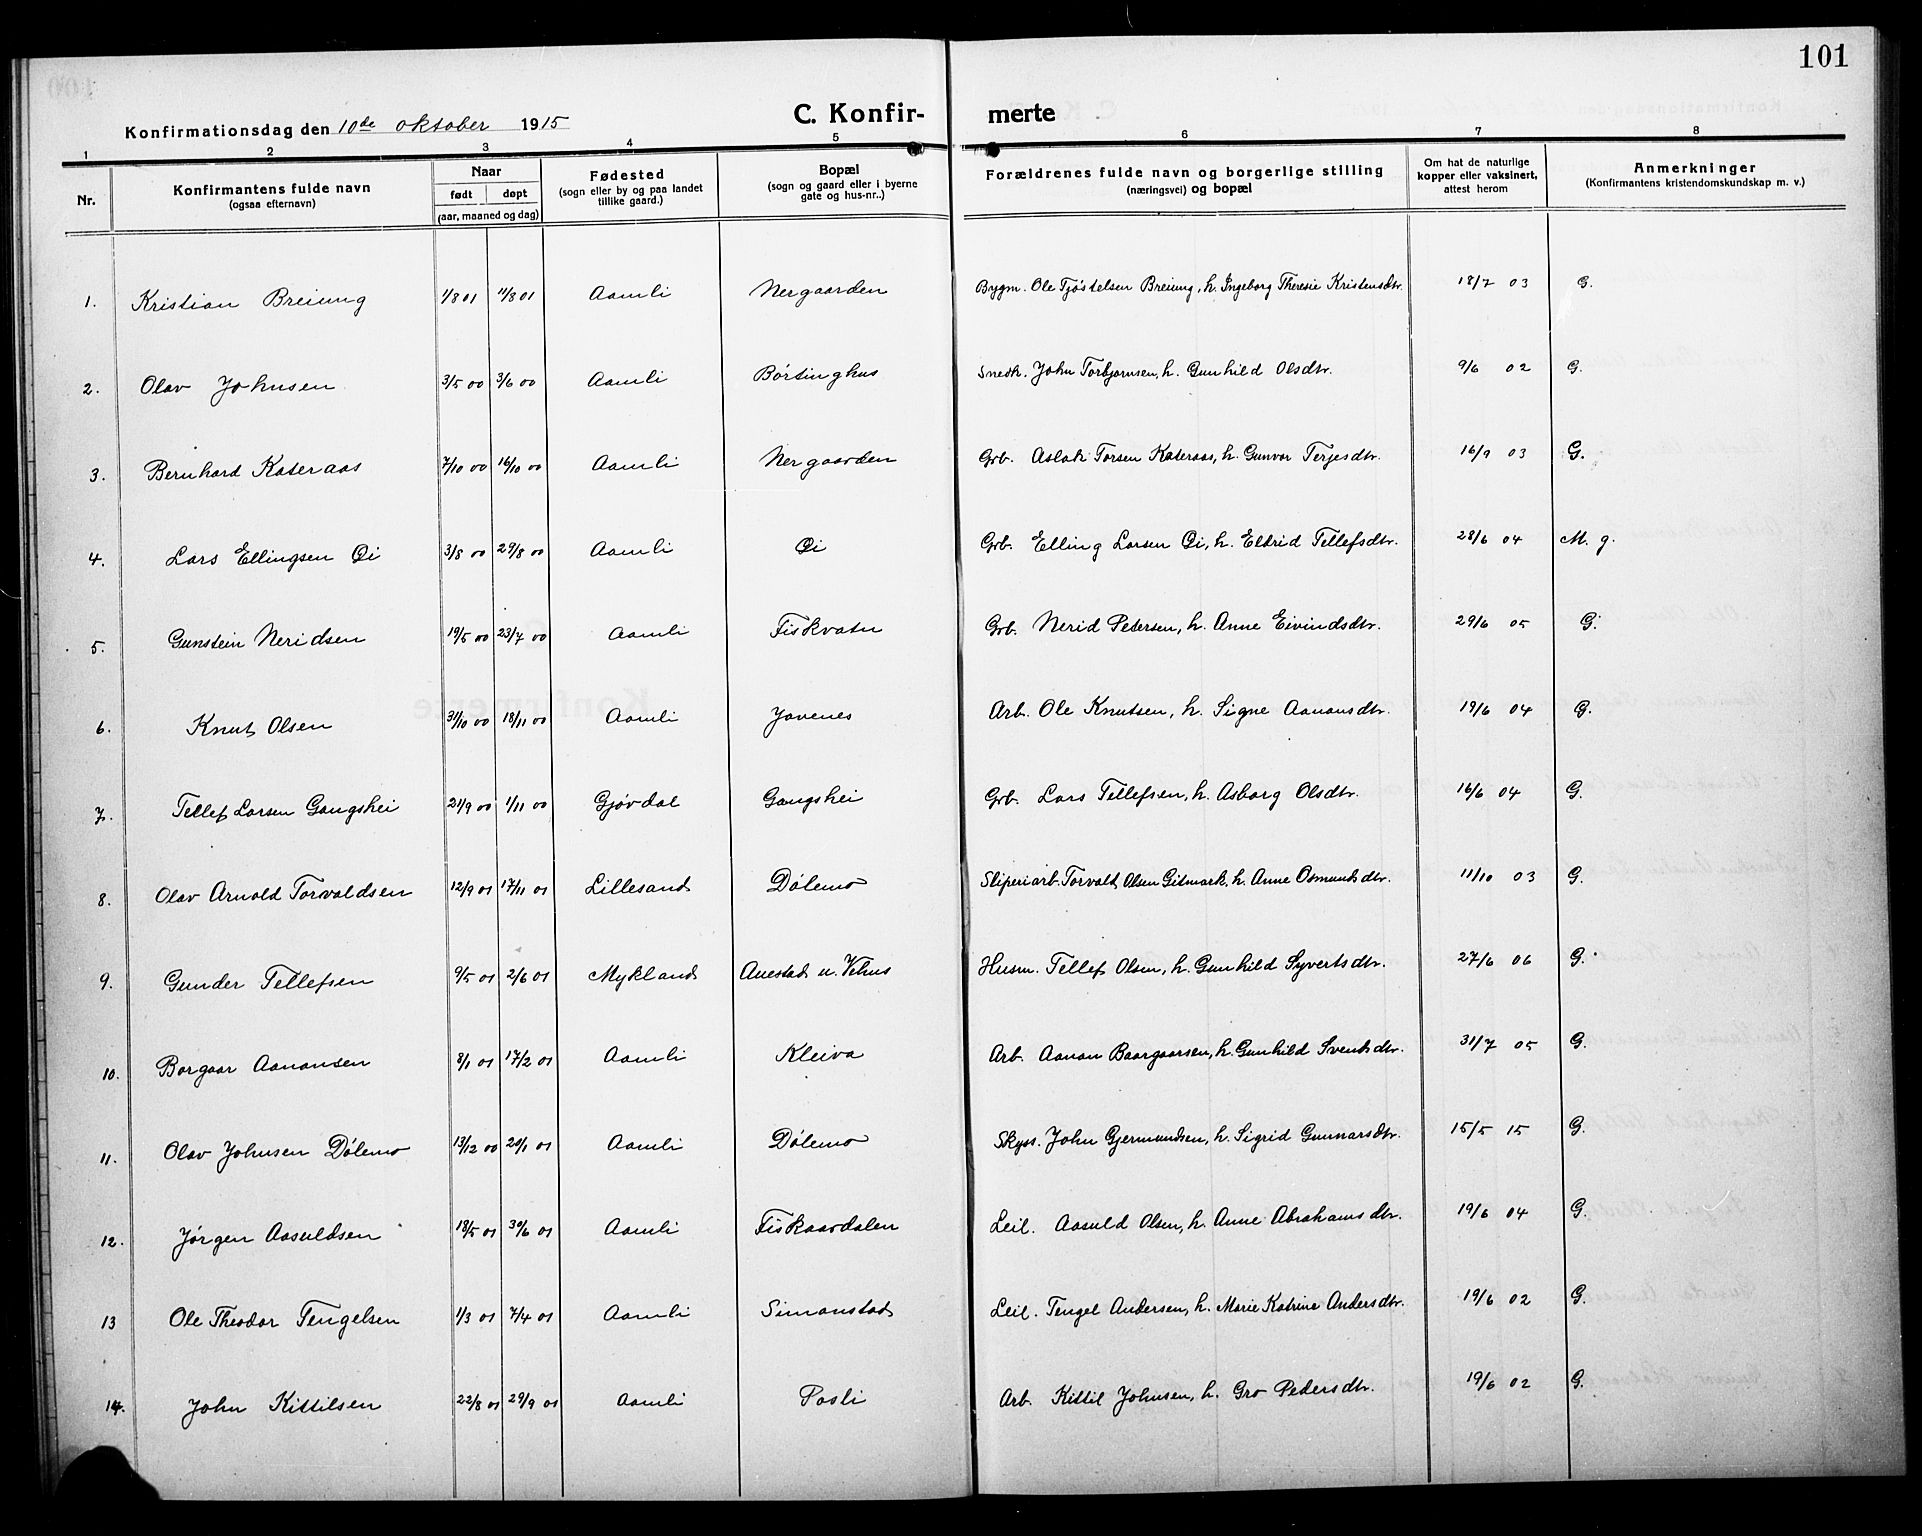 101
Konfirmationsdag den 10de oktober 1915 C. Konfir- merte
1 2 3 4 5 6 7 8
Nr. Konfirmantens fulde navn (ogsaa efternavn) Naar født døpt (aar, maaned og dag) Fødested (sogn eller by og paa landet tillike gaard.) Bopæl (sogn og gaard eller i byerne gate og hus-nr..) Forældrenes fulde navn og borgerlige stilling (næringsvei) og bopæl Om hat de naturlige kopper eller vaksinert, attest herom Anmerkninger (Konfirmantens kristendomskundskap m. v.)
1. Kristian Breiung 1/8 01 11/8 01 Aamli Nergaarden Bygm. Ole Tjøstelsen Breiung, h. Ingeborg Theresie Kristensdtr. 18/7 03 G.
2. Olav Johnsen 3/5 00 3/6 00 Aamli Børtinghus Snedk. John Torbjørnsen, h. Gunhild Olsdtr. 9/6 02 G.
3. Bernhard Kateraas 7/10 00 16/10 00 Aamli Nergaarden Grb. Aslak Torsen Kateraas, h. Gunvor Terjesdtr. 16/9 03 G.
4. Lars Ellingsen Øi 3/8 00 29/8 00 Aamli Øi Grb. Elling Larsen Øi, h. Eldrid Tellefsdtr. 28/6 04 M. g.
5. Gunstein Neridsen 19/5 00 23/7 00 Aamli Fiskvatn Grb. Nerid Petersen, h. Anne Eivindsdtr. 29/6 05 G.
6. Knut Olsen 31/10 00 18/11 00 Aamli Jovenes Arb. Ole Knutsen, h. Signe Aanonsdtr. 19/6 04 G.
7. Tellef Larsen Gangshei 21/9 00 1/11 00 Gjøvdal Gangshei Grb. Lars Tellefsen, h. Asborg Olsdtr. 16/6 04 G.
8. Olav Arnold Torvaldsen 12/9 01 17/11 01 Lillesand Dølemo Sliperiarb. Torvald Olsen Gitmark, h. Anne Osmundsdtr. 11/10 03 G.
9. Gunder Tellefsen 9/5 01 2/6 01 Mykland Auestad u. Vehus Husm. Tellef Olsen, h. Gunhild Syvertsdtr. 27/6 06 G.
10. Borgaar Aanonsen 8/1 01 17/2 01 Aamli Kleiva Arb. Aanon Baargaarsen, h. Gunhild Svendsdtr. 31/7 05 G.
11. Olav Johnsen Dølemo 13/12 00 20/1 01 Aamli Dølemo Skyss. John Gjermundsen, h. Sigrid Gunnarsdtr. 15/5 15 G.
12. Jørgen Aasuldsen 18/5 01 30/6 01 Aamli Fiskaardalen Leil. Aasuld Olsen, h. Anne Abrahamsdtr. 19/6 04 G.
13 Ole Theodor Tengelsen 1/3 01 7/4 01 Aamli Simonstad Leil. Tengel Andersen, h. Marie Katrine Andersdtr. 19/6 02 G.
14. John Kittilsen 22/8 01 29/9 01 Aamli Posli Arb. Kittil Johnsen, h. Gro Pedersdtr. 19/6 02 G.